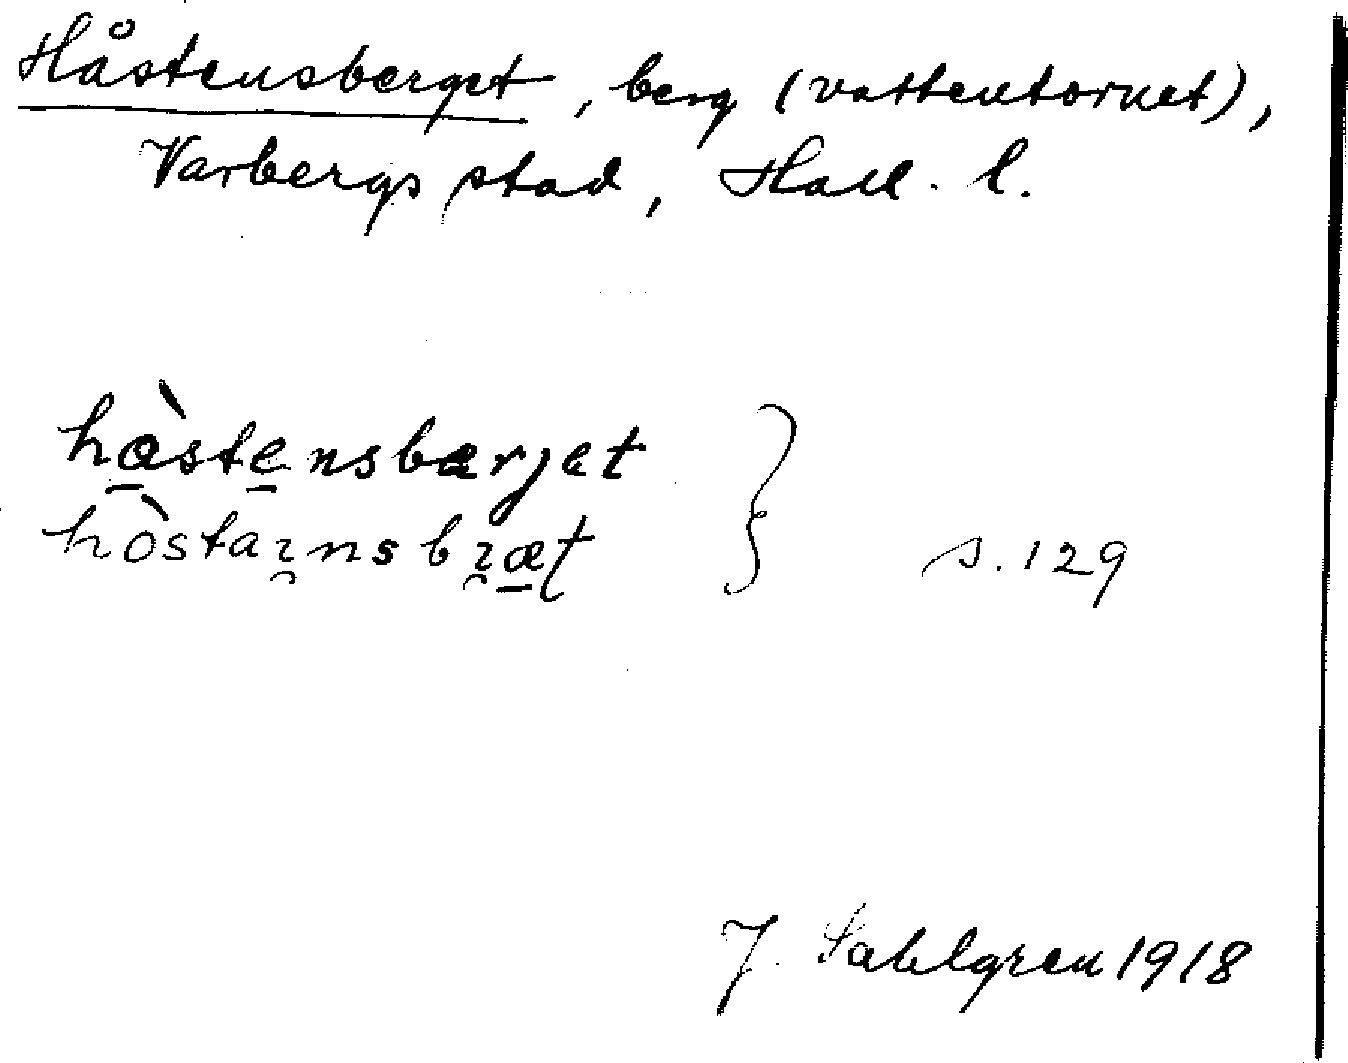 Håstensberget, berg (vattentornet),
Varbergs stad, Hall. l.
hàstensbærjet
hòstaɿnsbɿæt } s. 129
J. Sahlgren 1918